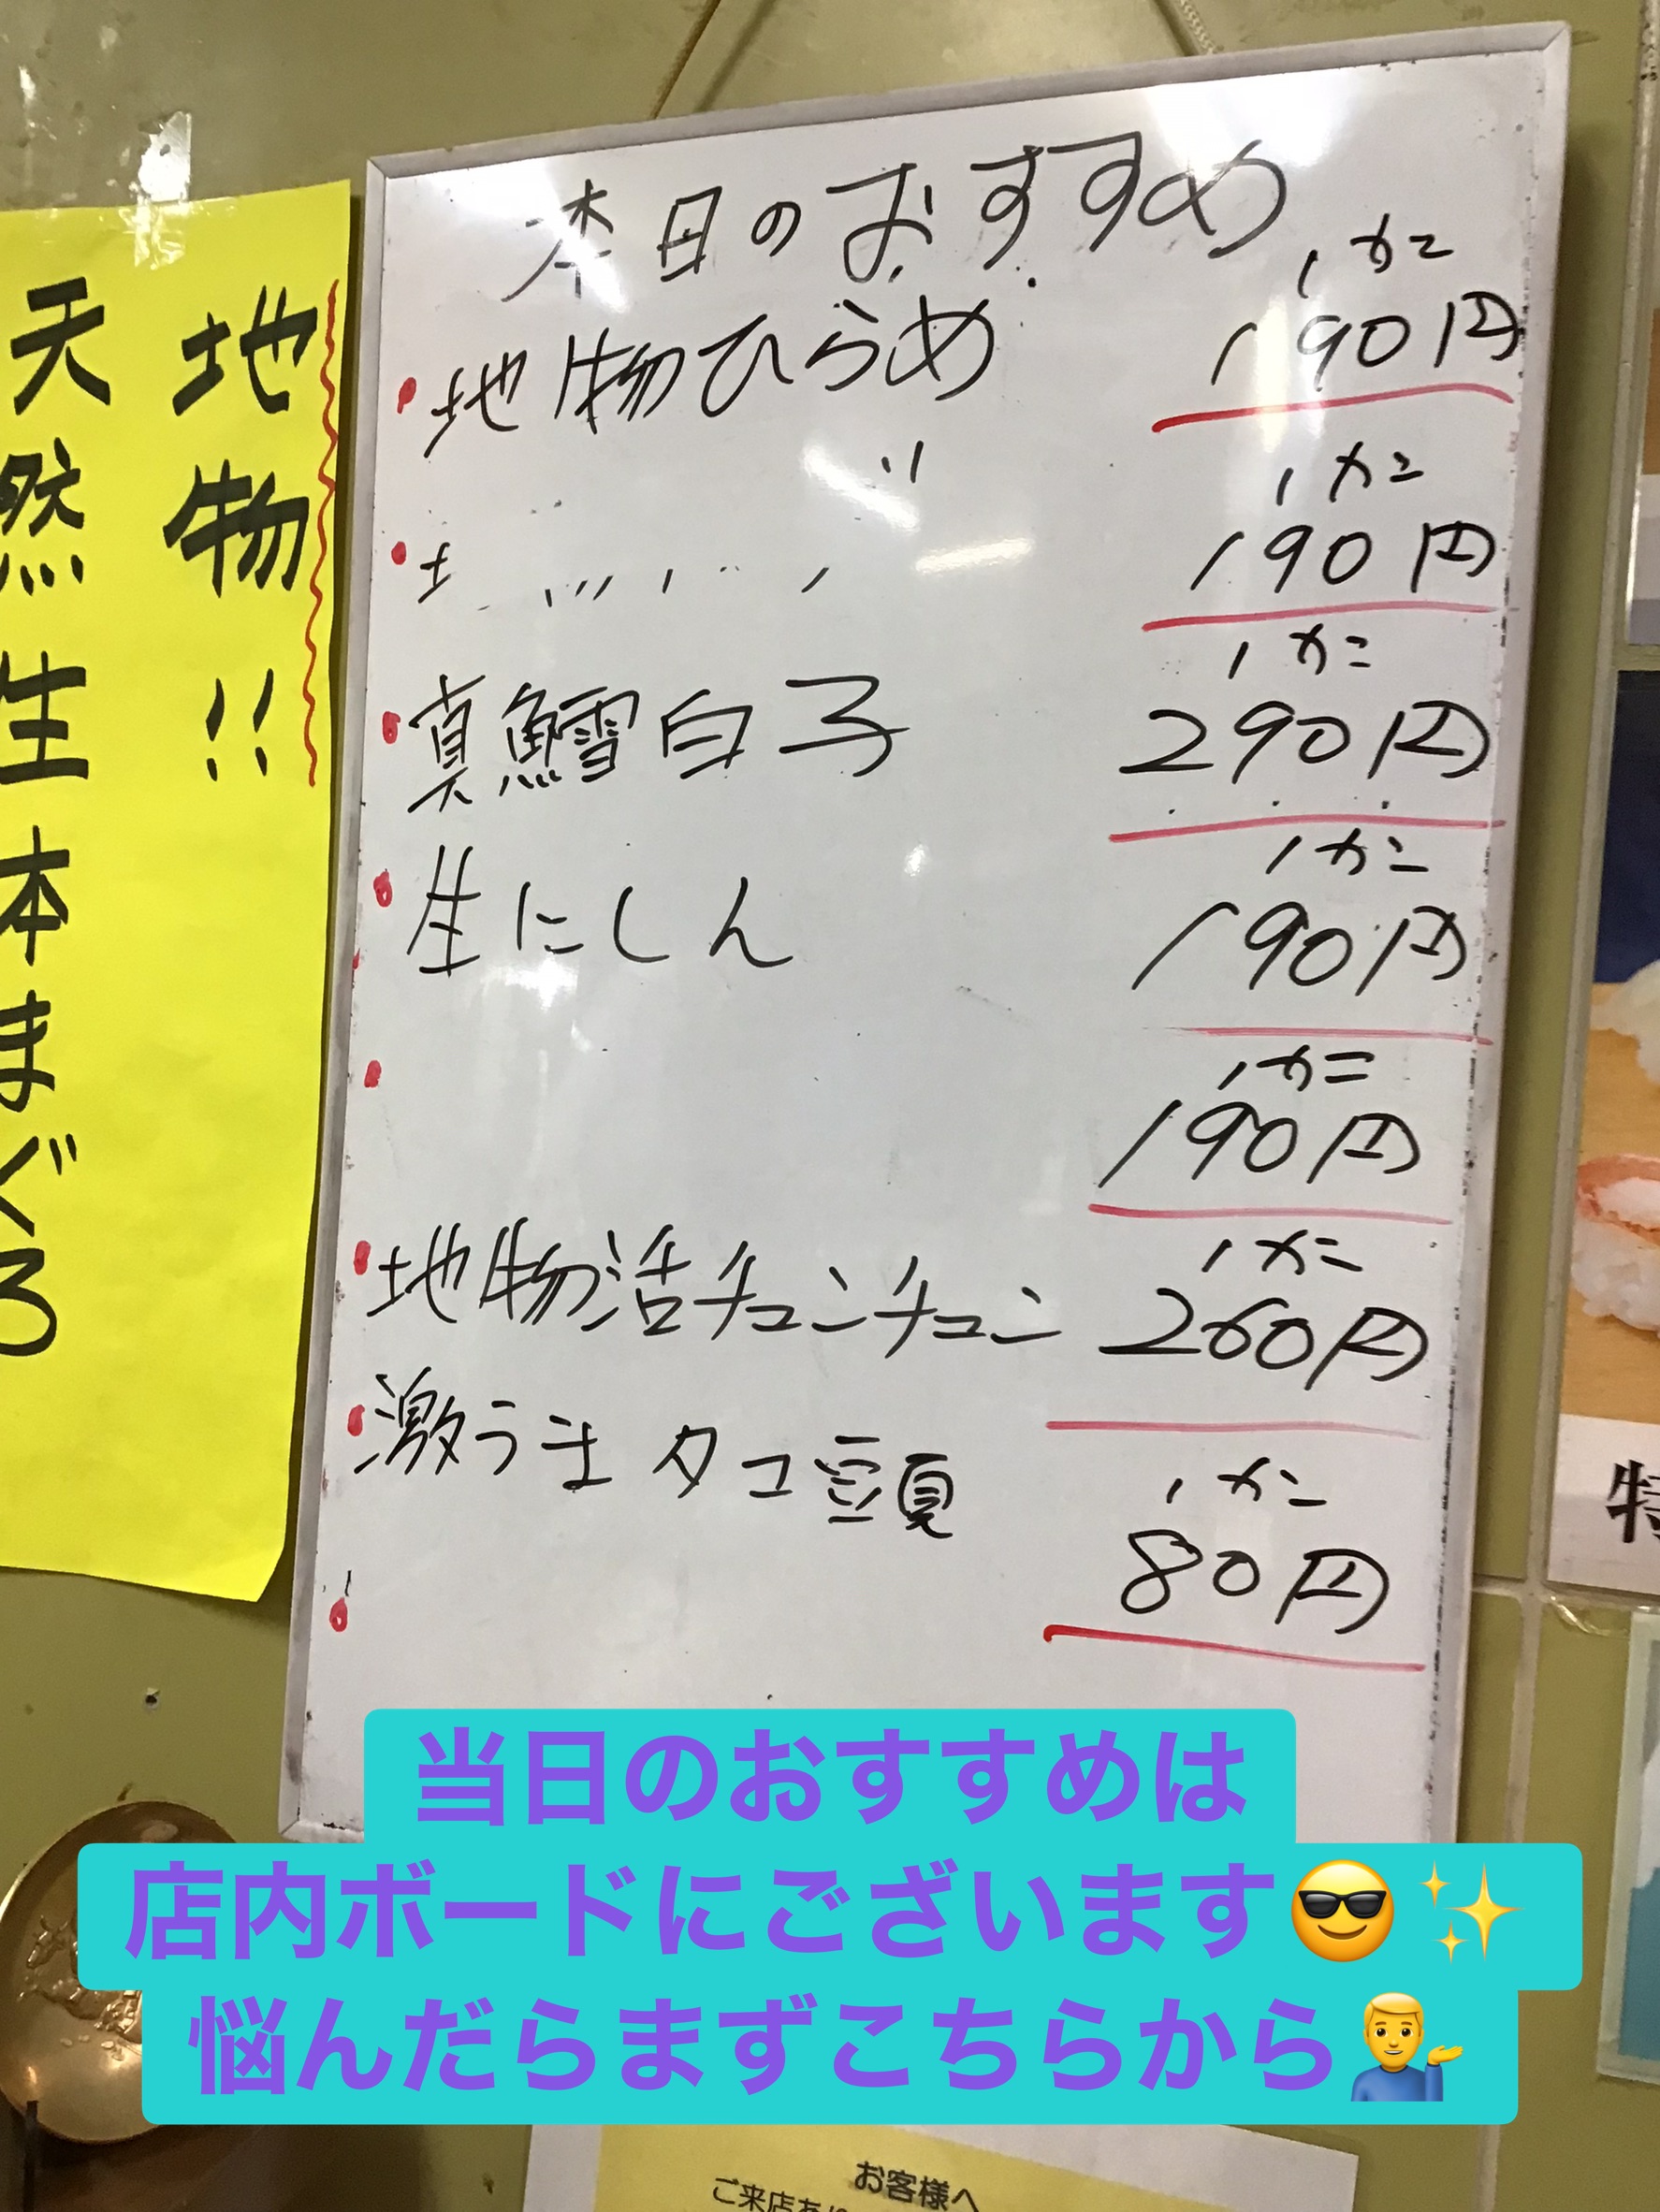 地物!!
天然生本まぐろ
本日のおすすめ
地物ひらめ
1カン
190円
1カン
190円
真鱈白子
1カン
290円
生にしん
1カン
190円
1カン
190円
地物活チュンチュン
1カン
260円
激うまタコ頭
1カン
80円
特
当日のおすすめは
店内ボードにございます😎✨
悩んだらまずこちらから💁‍♂️
お客様へ
ご来店あり